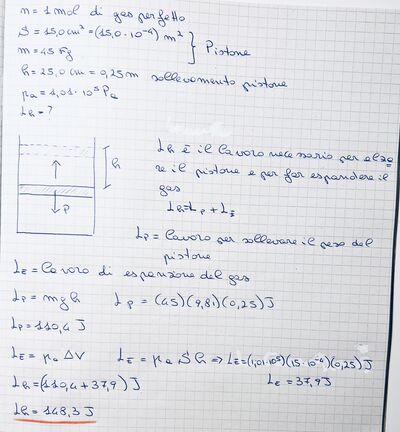 n = 1 mol di gas perfetto
S = 15,0 cm² = (15,0·10⁻⁴) m²
m = 45 Kg
Pistone
h = 25,0 cm = 0,25 m sollevamento pistone
pa = 1,01·10⁵ Pa
Lh = ?
Lh è il lavoro necessario per alza
re il pistone e per far espandere il
gas
Lh = LP + LE
h
P
LP = lavoro per sollevare il peso del
pistone
LE = lavoro di espansione del gas
LP = mgh LP = (45)(9,81)(0,25) J
LP = 110,4 J
LE = pa ΔV LE = pa S h => LE = (1,01·10⁵)(15·10⁻⁴)(0,25) J
Lh = (110,4 + 37,9) J LE = 37,9 J
Lh = 148,3 J